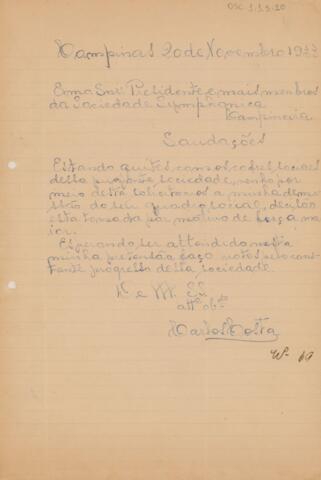 OSC 1.1.3.20
Campinas 20 de Novembro 19
Exmo Snr. Presidente e mais membros
da Sociedade Symphonica
Campineira
Saudações
Estando quites com os cofres sociaes
desta Sociedade, venho por
meio desta solicitar a minha demi
do seu quadro social, decisão
esta tomada por motivo de força ma
ior.
Esperando ser attendido nesta
minha faço votos pelo cons
tante progresso desta sociedade
De VV. SS.
attº obdº
Carlos Costa
Nº 69